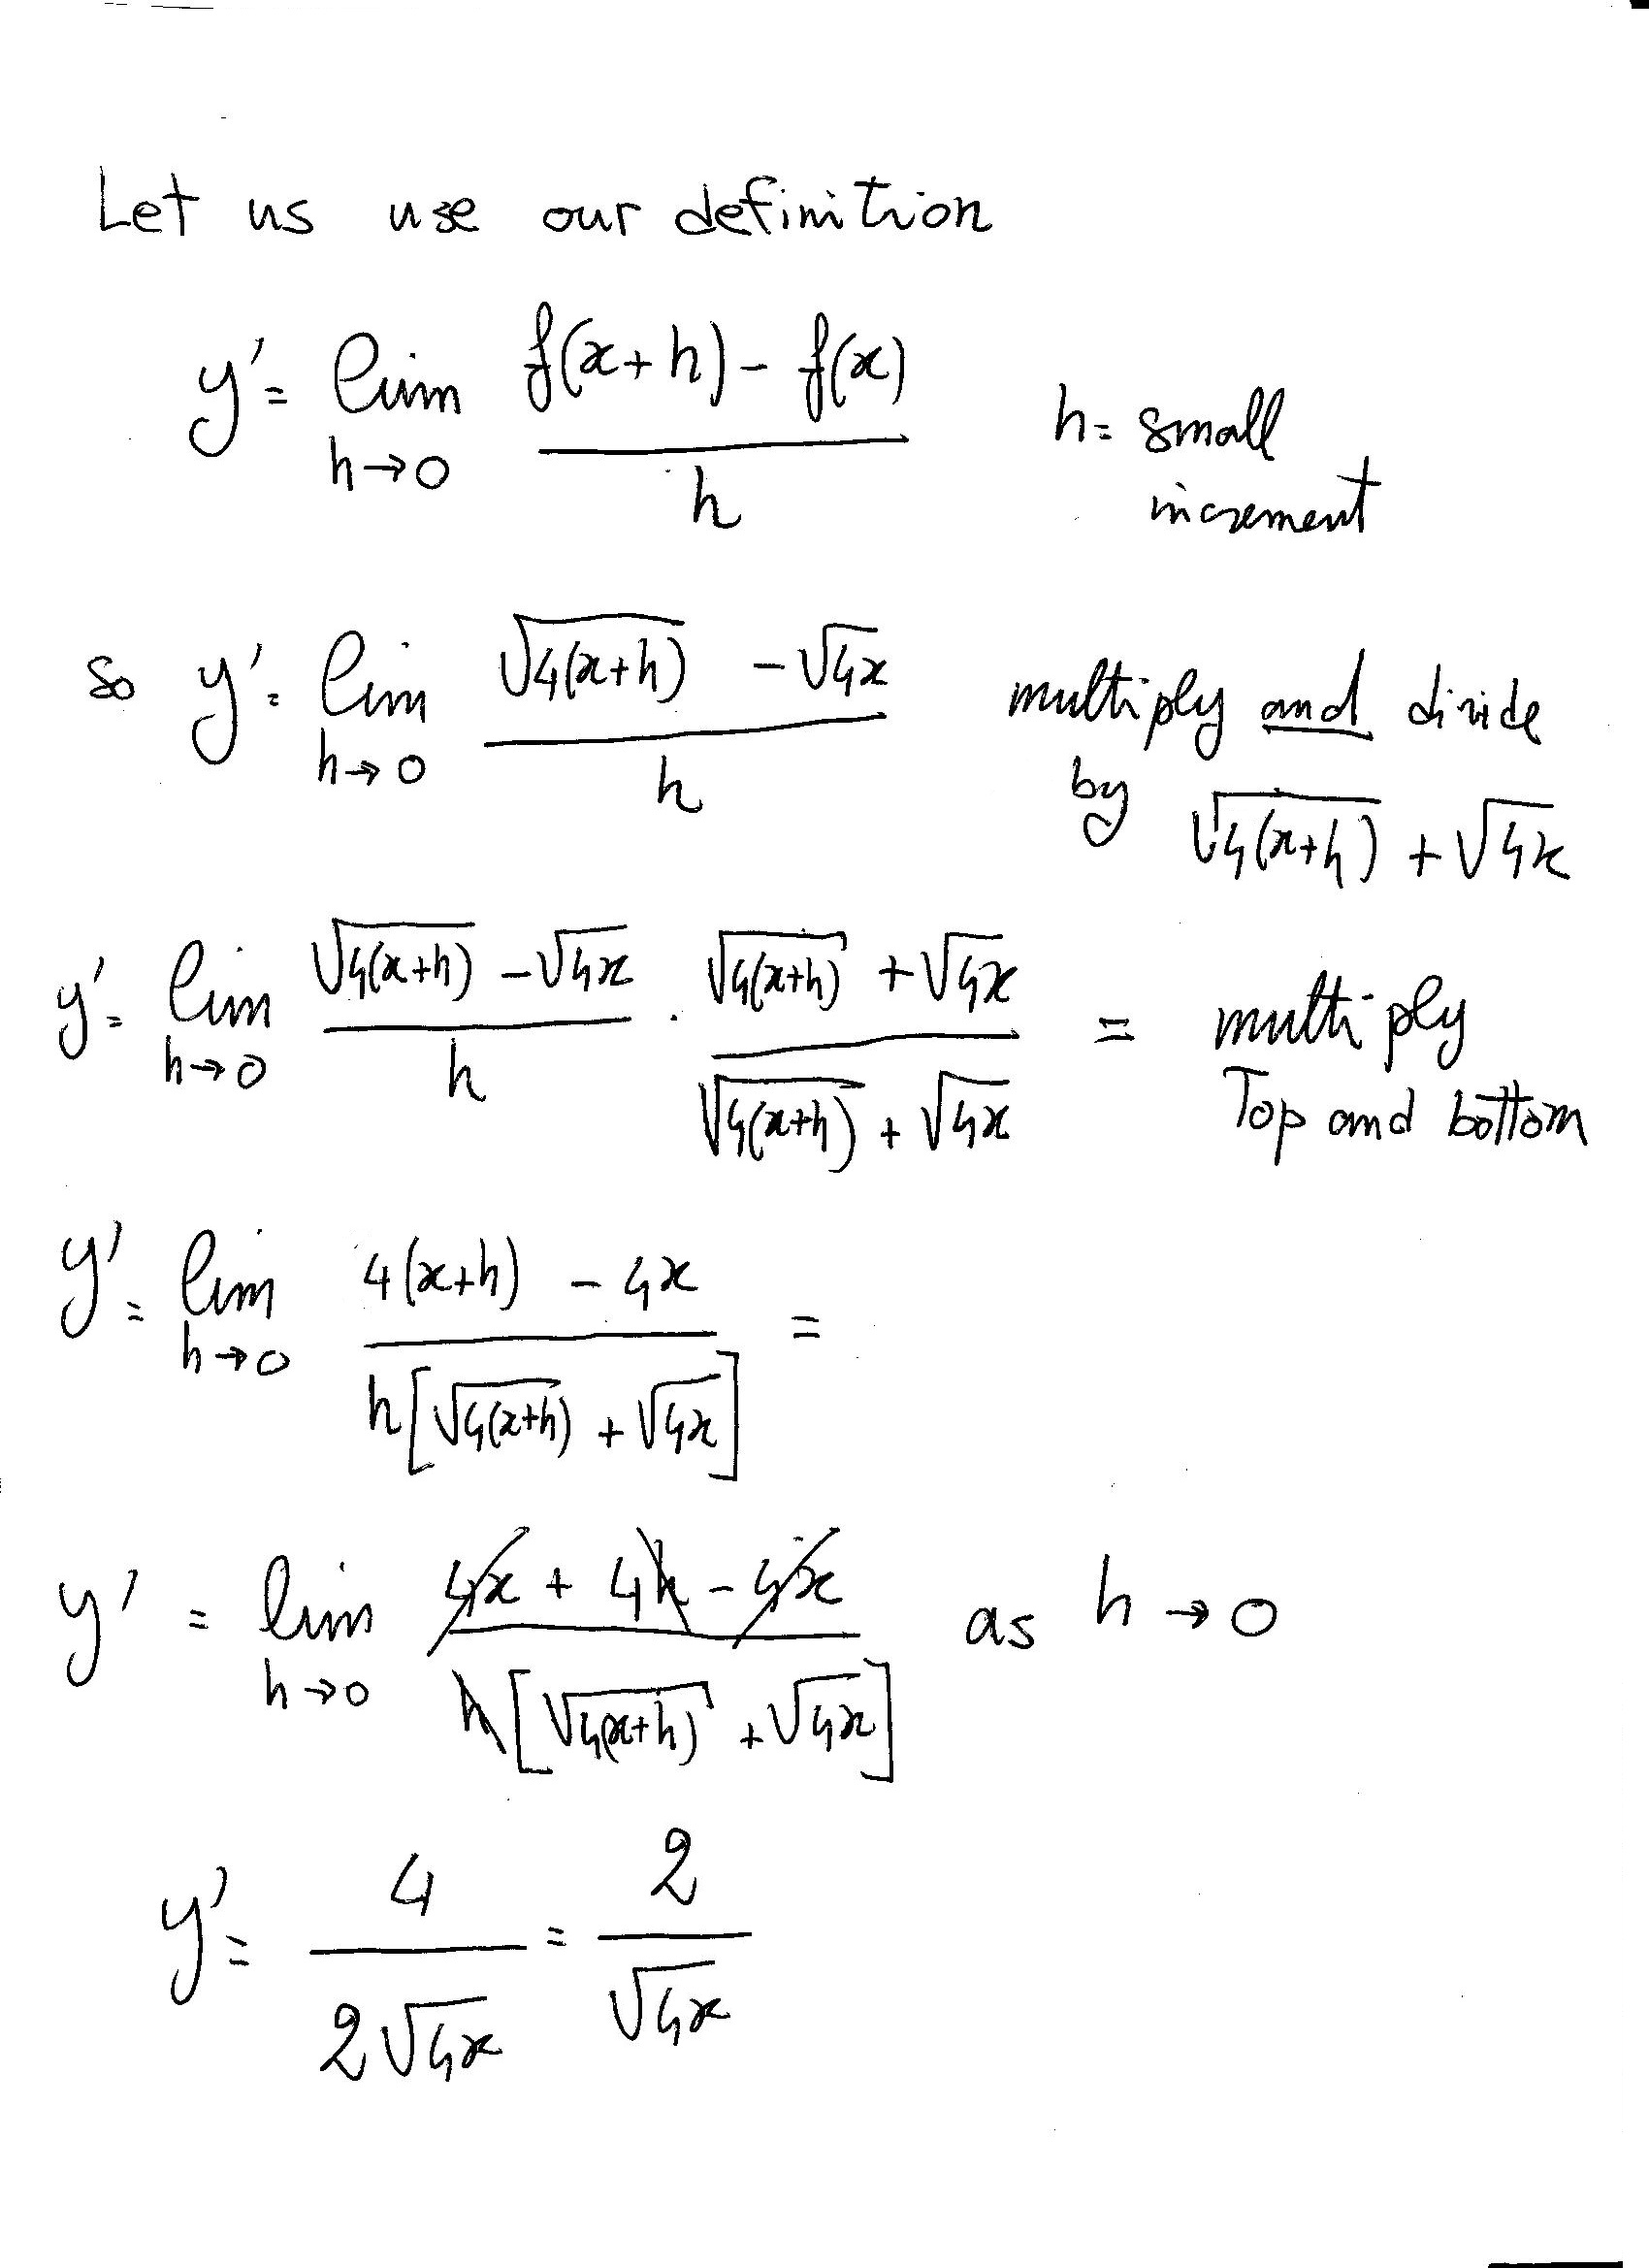 Let us use our definition
y' = lim h→0 (f(x+h) - f(x)) / h    h = small increment
so y' = lim h→0 (√(4(x+h)) - √(4x)) / h    multiply and divide by √(4(x+h)) + √(4x)
y' = lim h→0 (√(4(x+h)) - √(4x)) / h · (√(4(x+h)) + √(4x)) / (√(4(x+h)) + √(4x)) = multiply Top and bottom
y' = lim h→0 (4(x+h) - 4x) / (h[√(4(x+h)) + √(4x)]) =
y' = lim h→0 (4x + 4h - 4x) / (h[√(4(x+h)) + √(4x)])    as h→0
y' = 4 / (2√(4x)) = 2 / √(4x)